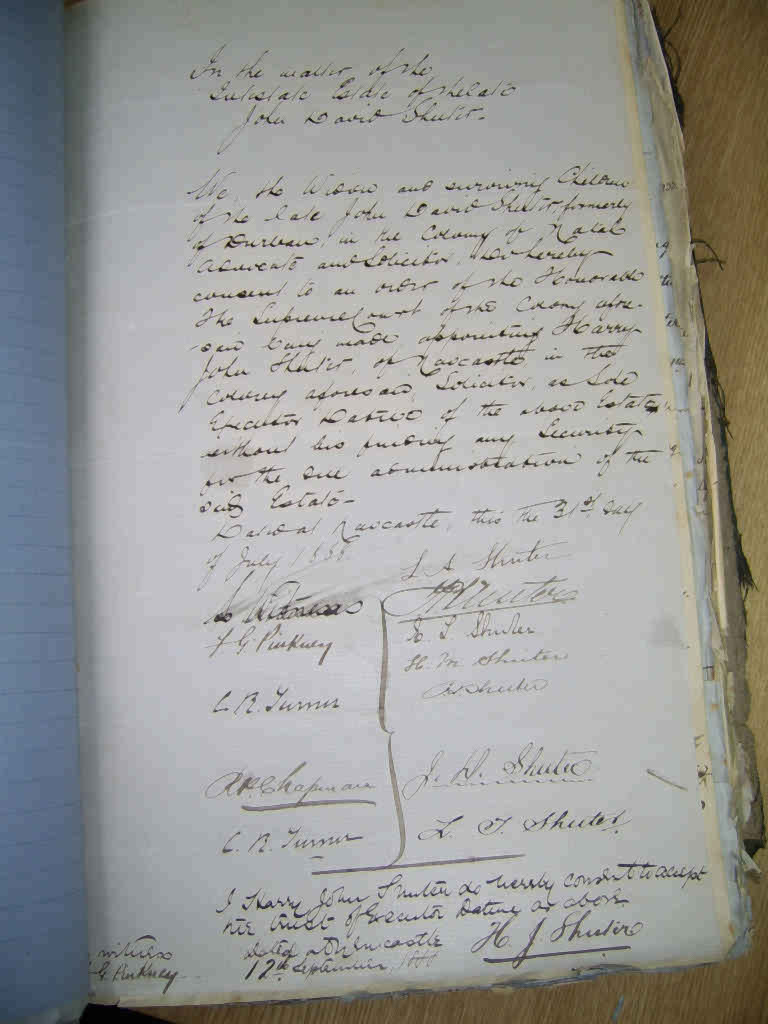 In the matter of the
Intestate Estate of the late
John David Shuter.
We, the Widow and surviving Children
of the late John David Shuter, formerly
of Durban, in the Colony of Natal
Advocate and Solicitor, do hereby
consent to an order of the Honorable
the Supreme Court of the Colony afore-
-said being made, appointing Harry
John Shuter, of Newcastle, in the
Colony aforesaid, Solicitor, as Sole
Executor Dative of the above Estate
without his finding any Security
for the due administration of the
said Estate-
Dated at Newcastle, this the 31st day
of July 1888
L A Shuter
As Witnesses
F G Pinkney
E. L. Shuter
H. M. Shuter
C. R. Turner
A Shuter
R H Chapman
J. D. Shuter
C. R. Turner
L. T. Shuter.
I Harry John Shuter do hereby consent to accept
the trust of Executor Dative as above
dated at Newcastle
H. J. Shuter
12th September, 1888
witness
F. G. Pinkney